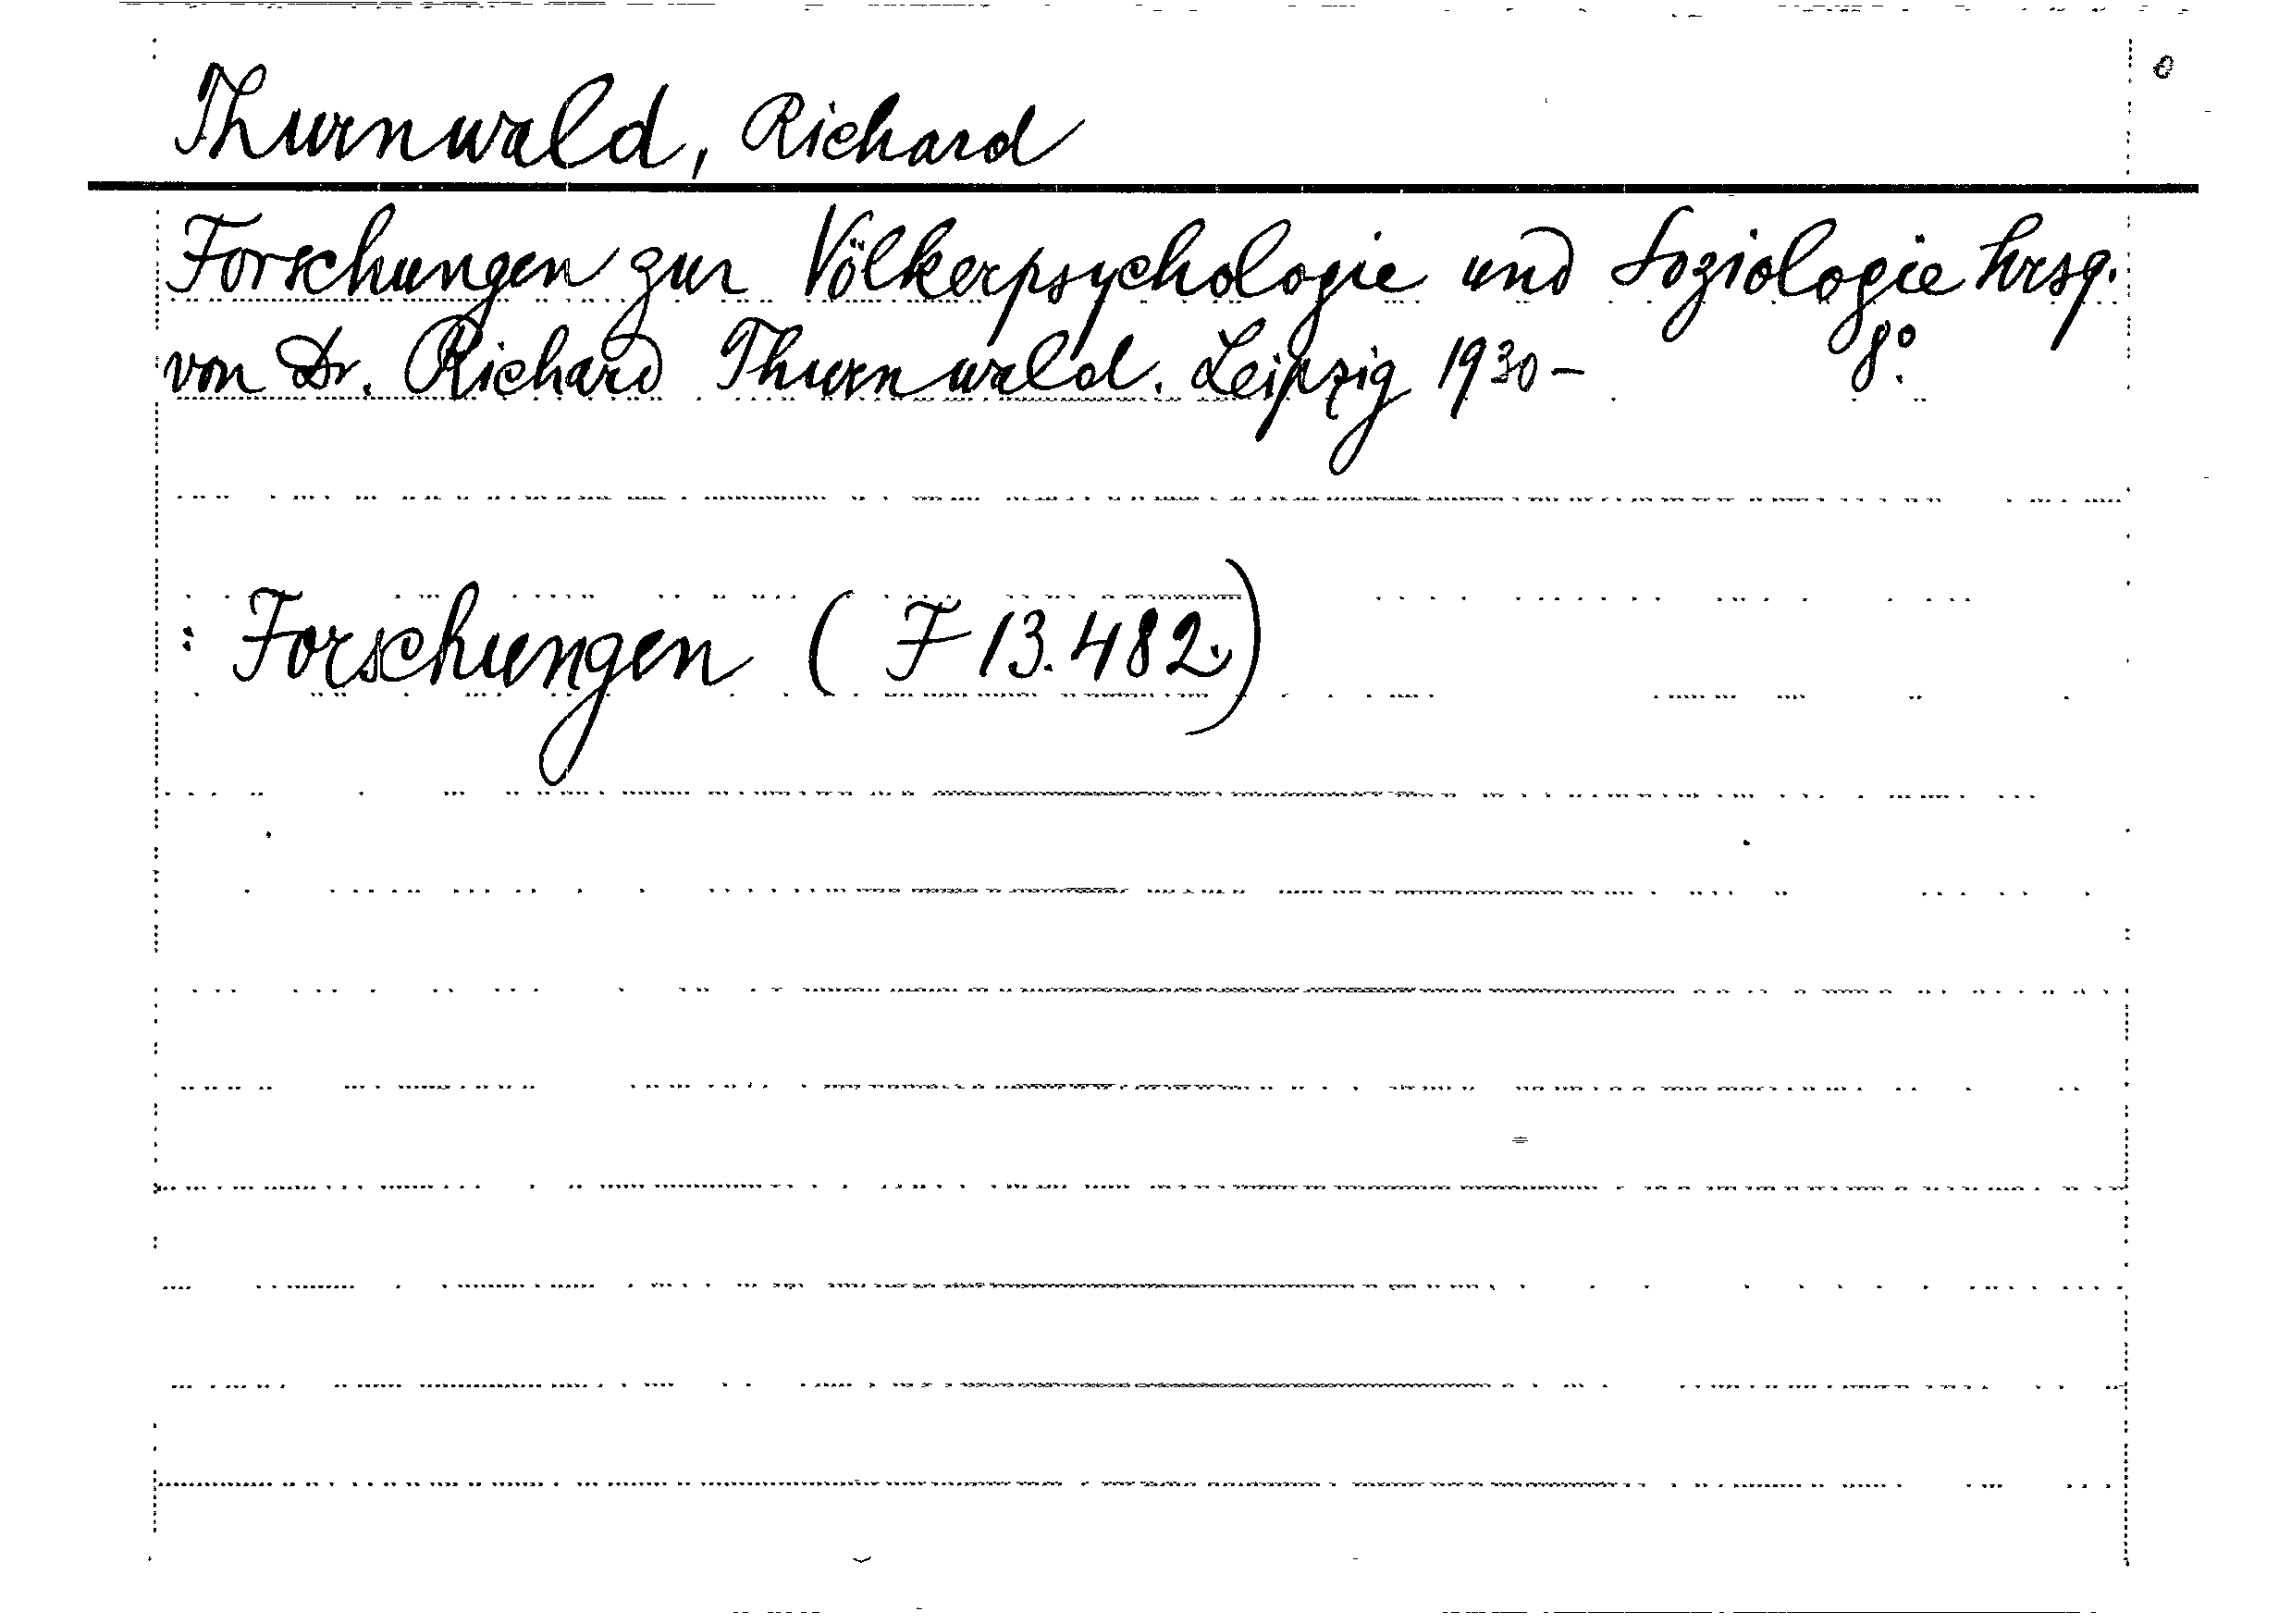 Thurnwald, Richard
Forschungen zur Völkerpsychologie und Soziologie hrsg.
von Dr. Richard Thurnwald. Leipzig 1930– 8°.
: Forschungen (F 13.482.)